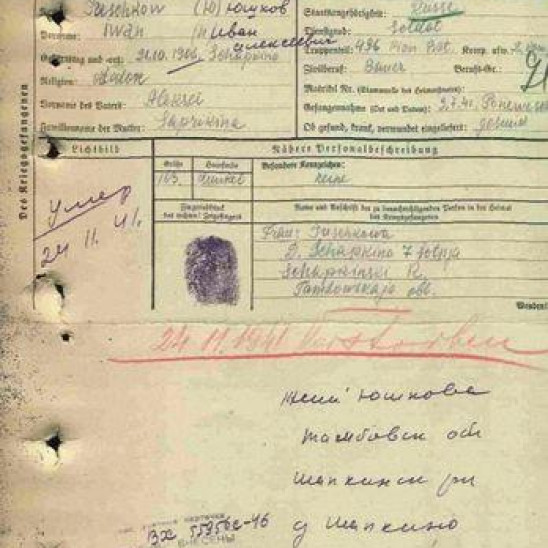 (Ю) Юшков Staatsangehörigkeit: Russe
Vorname: Iwan Иван Dienstgrad: Soldat
Алексеевич Truppenteil: 496
Geburtstag und -ort: 21.10.1906, Schapkino Zivilberuf: Bauer Berufs-Gr.:
Religion: Matrikel Nr. (Stammrolle des Heimatstaates):
Vorname des Vaters: Aleksei Gefangennahme (Ort und Datum): 9.7.41.
Familienname der Mutter: Saprikina Ob gesund, krank, verwundet eingeliefert: gesund
Des Kriegsgefangenen
Lichtbild Nähere Personalbeschreibung
Größe Haarfarbe Besondere Kennzeichen:
163. dunkel keine
умер
24 11. 41.
Fingerabdruck
des rechten Zeigefingers
Name und Anschrift der zu benachrichtigenden Person in der Heimat
des Kriegsgefangenen
Frau: Juschkowa
D. Schapkino
Schapkinski R.
Tambowskaja obl.
Wenden!
24. 11. 1941 Verstorben
Юшкова
Тамбовск об
Шапкинск р
д Шапкино